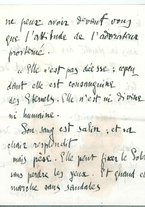 ne peux avoir devant vous
que l'attitude de l'adorateur
prosterné.
« Elle n'est pas déesse ; cepen
dant elle est consanguine
des Eternels. Elle n'est ni divine
ni humaine.
Son sang est salin, et sa
chair resplendit
mais pèse. Elle peut fixer le Soleil
sans perdre les yeux. Et quand elle
marche sans sandales